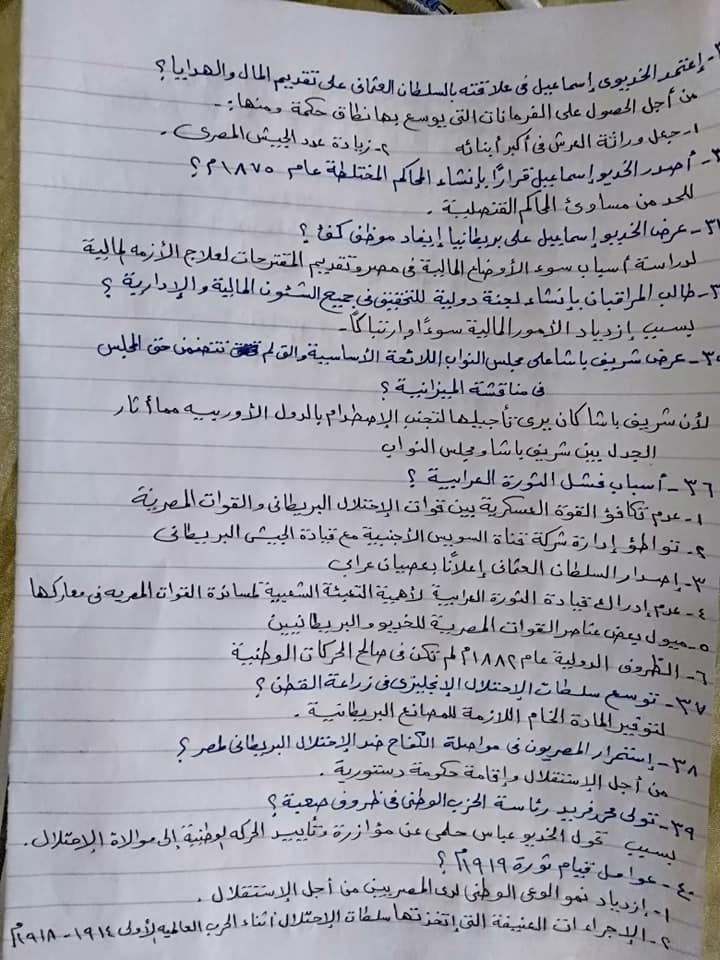 إعتمد الخديوى إسماعيل فى علاقته بالسلطان العثمانى على تقديم المال والهدايا ؟
من أجل الحصول على الفرمانات التى يوسع بها نطاق حكمة ومنها :-
١- جعل وراثة العرش فى أكبر أبنائه ٢- زيادة عدد الجيش المصرى .
أصدر الخديو إسماعيل قرارًا بإنشاء المحاكم المختلطة عام ١٨٧٥م ؟
للحد من مساوئ المحاكم القنصلية .
- عرض الخديو إسماعيل على بريطانيا إيفاد موظف كفء ؟
لدراسة أسباب سوء الأوضاع المالية فى مصر وتقديم المقترحات لعلاج الأزمه المالية
- طالب المراقبان بإنشاء لجنة دولية للتحقيق فى جميع الشئون المالية والإدارية ؟
بسبب إزدياد الأمور المالية سوءًا وارتباكًا .
- عرض شريف باشا على مجلس النواب اللائحة الأساسية والتى لم تتضمن حق المجلس
فى مناقشة الميزانية ؟
لأن شريف باشا كان يرى تأجيلها لتجنب الإصطدام بالدول الأوربيه مما أثار
الجدل بين شريف باشا ومجلس النواب
٣٦- أسباب فشل الثورة العرابية ؟
١- عدم تكافؤ القوة العسكرية بين قوات الإحتلال البريطانى والقوات المصرية
٢- تواطؤ إدارة شركة قناة السويس الأجنبية مع قيادة الجيش البريطانى
٣- إصدار السلطان العثمانى إعلانًا بعصيان عرابى
٤- عدم إدراك قيادة الثورة العرابية لأهمية التعبئة الشعبية لمساندة القوات المصريه فى معاركها
٥- ميول بعض عناصر القوات المصرية للخديو والبريطانيين
٦- الظروف الدولية عام ١٨٨٢م لم تكن فى صالح الحركات الوطنية
٣٧- توسع سلطات الإحتلال الإنجليزى فى زراعة القطن ؟
لتوفير المادة الخام اللازمة للمصانع البريطانية .
٣٨- إستمرار المصريون فى مواصلة الكفاح ضد الإحتلال البريطانى لمصر ؟
من أجل الإستقلال وإقامة حكومة دستورية .
٣٩- تولى محمد فريد رئاسة الحزب الوطنى فى ظروف صعبة ؟
بسبب تحول الخديو عباس حلمى عن مؤازرة وتأييد الحركه الوطنية إلى موالاة الإحتلال .
٤٠- عوامل قيام ثورة ١٩١٩م ؟
١- إزدياد نمو الوعى الوطنى لدى المصريين من أجل الإستقلال .
٢- الإجراءات العنيفة التى إتخذتها سلطات الإحتلال أثناء الحرب العالميه الأولى ١٩١٤-١٩١٨م